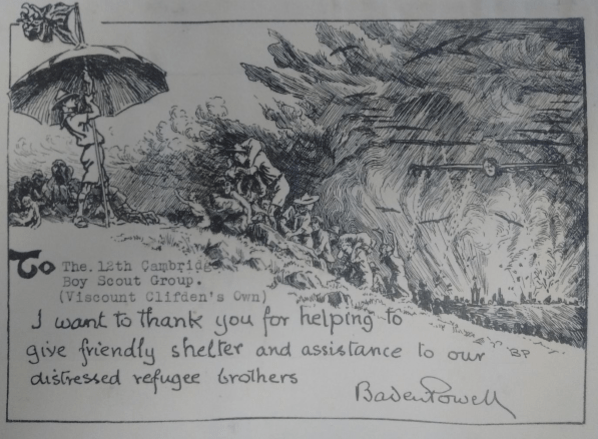 To The. 12th Cambridge
Boy Scout Group.
(Viscount Clifden's Own)
I want to thank you for helping to
give friendly shelter and assistance to our
distressed refugee brothers
BP
Baden Powell